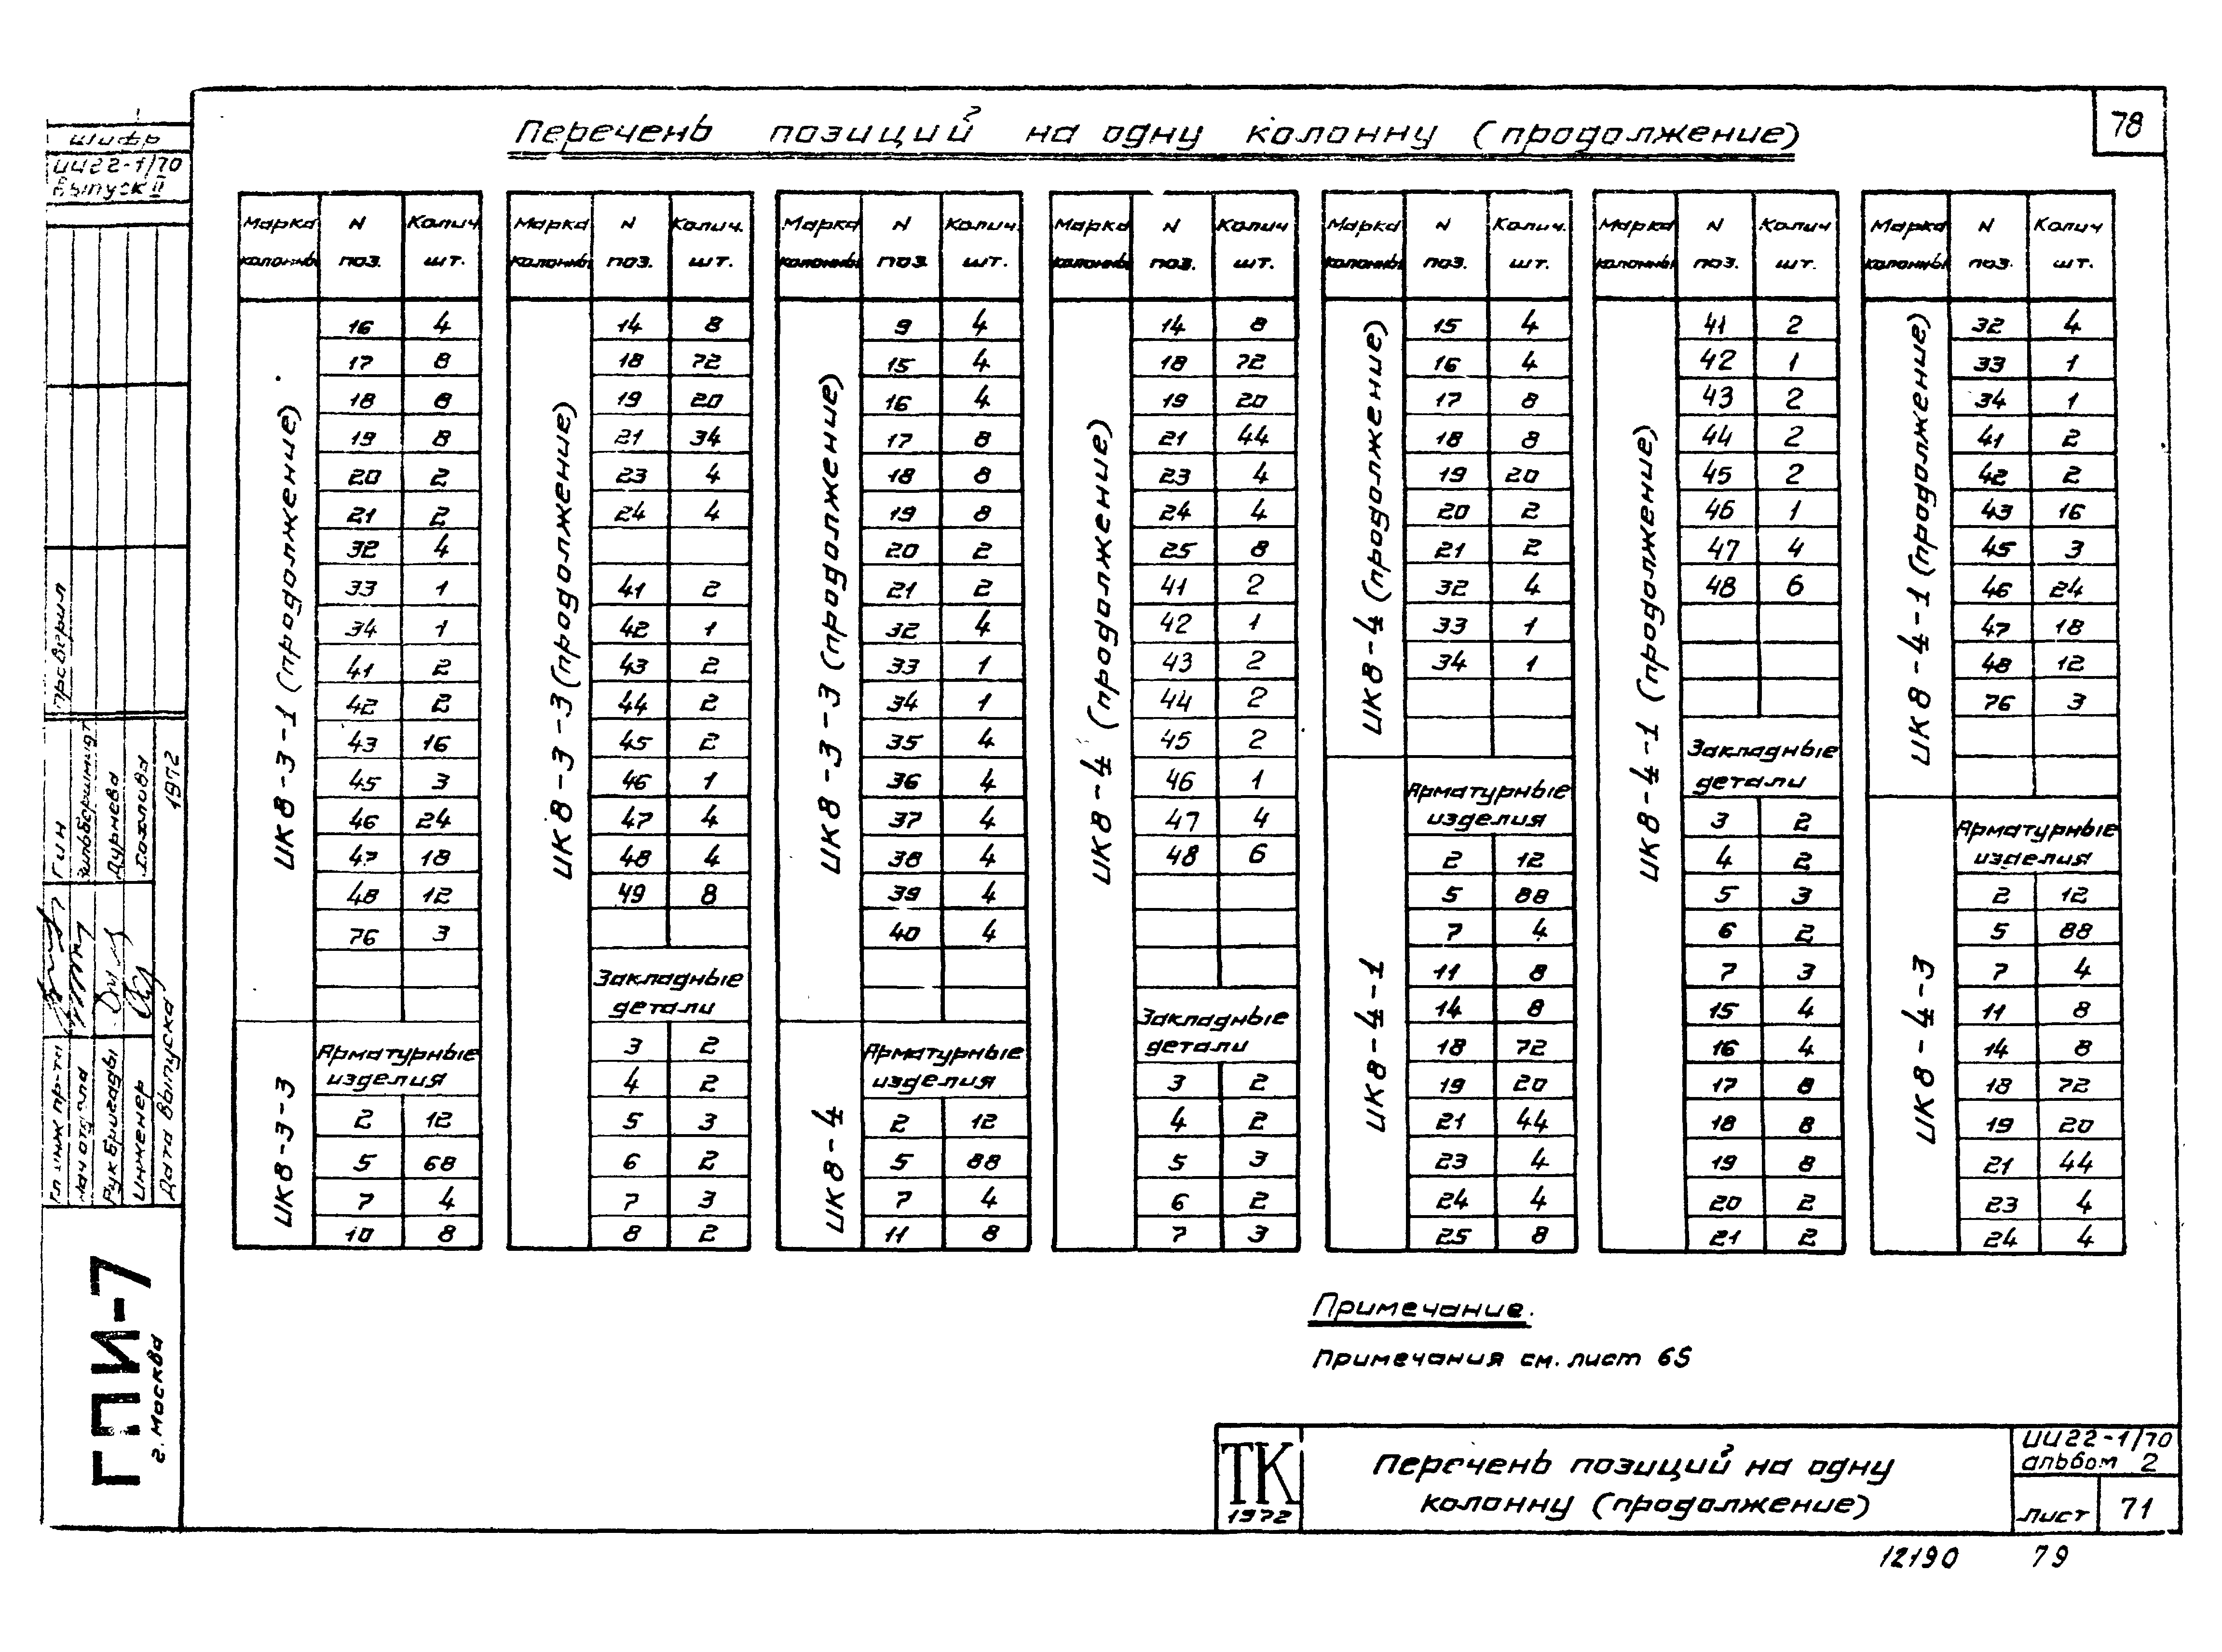 78
Перечень позиций на одну колонну (продолжение)
Шифр
ИИ22-1/70
Выпуск II
Марка колонны N поз. Колич. шт.
ИК8-3-1 (продолжение)
16 4
17 8
18 8
19 8
20 2
21 2
32 4
33 1
34 1
41 2
42 2
43 16
45 3
46 24
47 18
48 12
76 3
ИК8-3-3
Арматурные
изделия
2 12
5 68
7 4
10 8
Марка колонны N поз. Колич. шт.
ИК8-3-3 (продолжение)
14 8
18 72
19 20
21 34
23 4
24 4
41 2
42 1
43 2
44 2
45 2
46 1
47 4
48 4
49 8
Закладные
детали
3 2
4 2
5 3
6 2
7 3
8 2
Марка колонны N поз. Колич. шт.
ИК8-3-3 (продолжение)
9 4
15 4
16 4
17 8
18 8
19 8
20 2
21 2
32 4
33 1
34 1
35 4
36 4
37 4
38 4
39 4
40 4
ИК8-4
Арматурные
изделия
2 12
5 88
7 4
11 8
Марка колонны N поз. Колич шт.
ИК8-4 (продолжение)
14 8
18 72
19 20
21 44
23 4
24 4
25 8
41 2
42 1
43 2
44 2
45 2
46 1
47 4
48 6
Закладные
детали
3 2
4 2
5 3
6 2
7 3
Марка колонны N поз. Колич. шт.
ИК8-4 (продолжение)
15 4
16 4
17 8
18 8
19 20
20 2
21 2
32 4
33 1
34 1
ИК8-4-1
Арматурные
изделия
2 12
5 88
7 4
11 8
14 8
18 72
19 20
21 44
23 4
24 4
25 8
Марка колонны N поз. Колич шт.
ИК8-4-1 (продолжение)
41 2
42 1
43 2
44 2
45 2
46 1
47 4
48 6
Закладные
детали
3 2
4 2
5 3
6 2
7 3
15 4
16 4
17 8
18 8
19 8
20 2
21 2
Марка колонны N поз. Колич шт.
ИК8-4-1 (продолжение)
32 4
33 1
34 1
41 2
42 2
43 16
45 3
46 24
47 18
48 12
76 3
ИК8-4-3
Арматурные
изделия
2 12
5 88
7 4
11 8
14 8
18 72
19 20
21 44
23 4
24 4
Примечание.
Примечания см. лист 65
проверил
Гл инж пр-та Гин
Нач отдела
Рук бригады Дурнева
Инженер
Дата выпуска 1972
ГПИ-7
г. Москва
ТК
1972
Перечень позиций на одну
колонну (продолжение)
ИИ22-1/70
альбом 2
Лист 71
12190 79